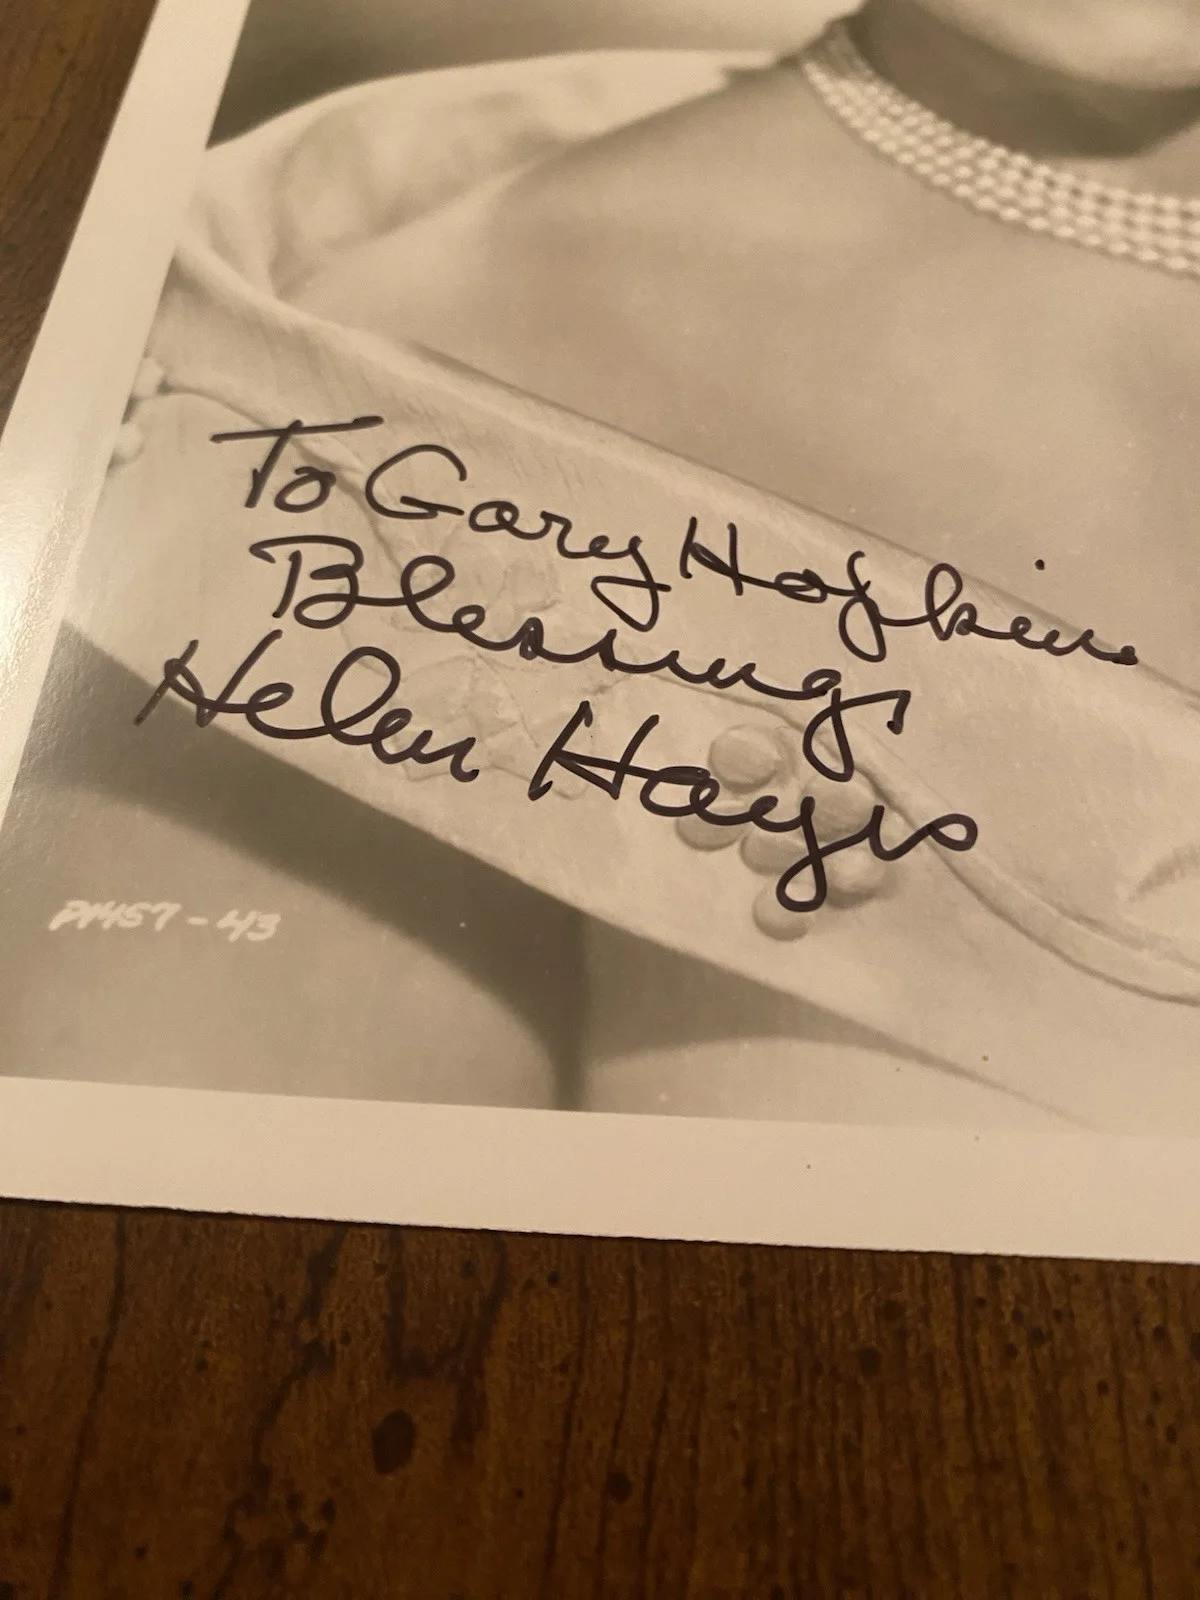 To Gary Hopkins
Blessings
Helen Hayes
P1457-43